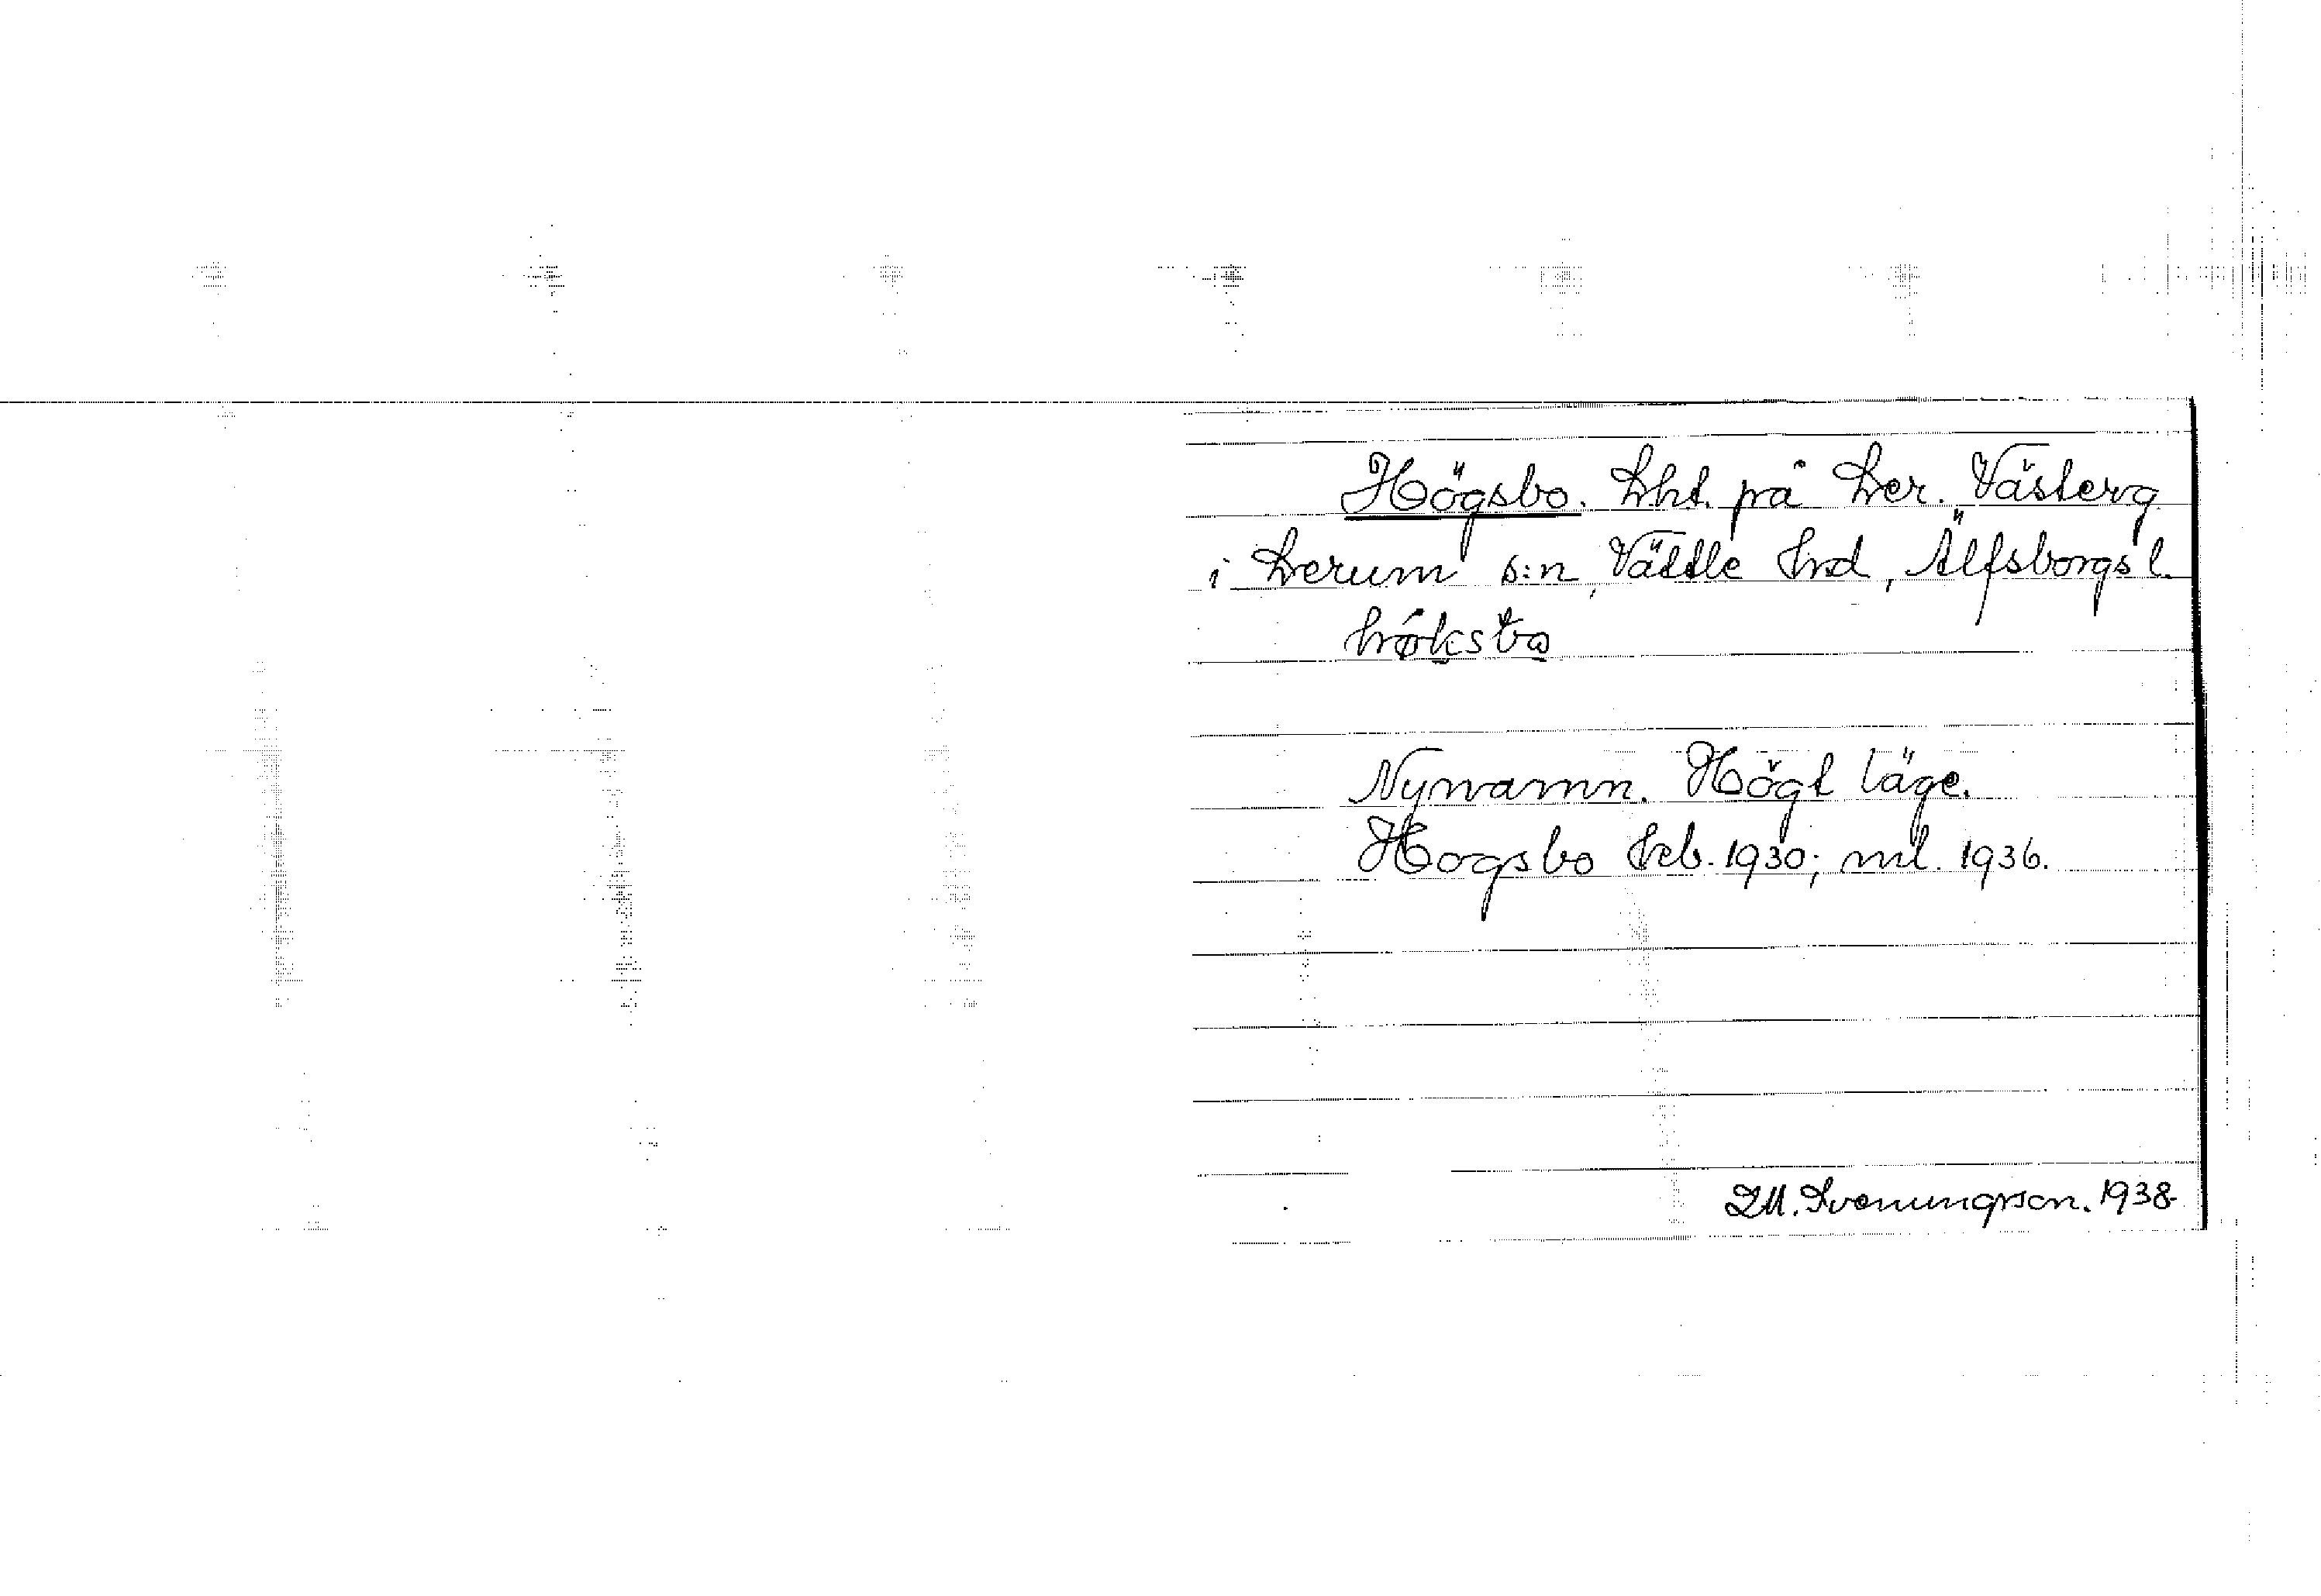 Högsbo. Lht. på Ler. Västerg
i Lerum s:n, Vättle hrd, Älfsborgs l.
Nynamn. Högt läge.
Hogsbo frb. 1930; ml. 1936.
I.M. Svenungsson. 1938